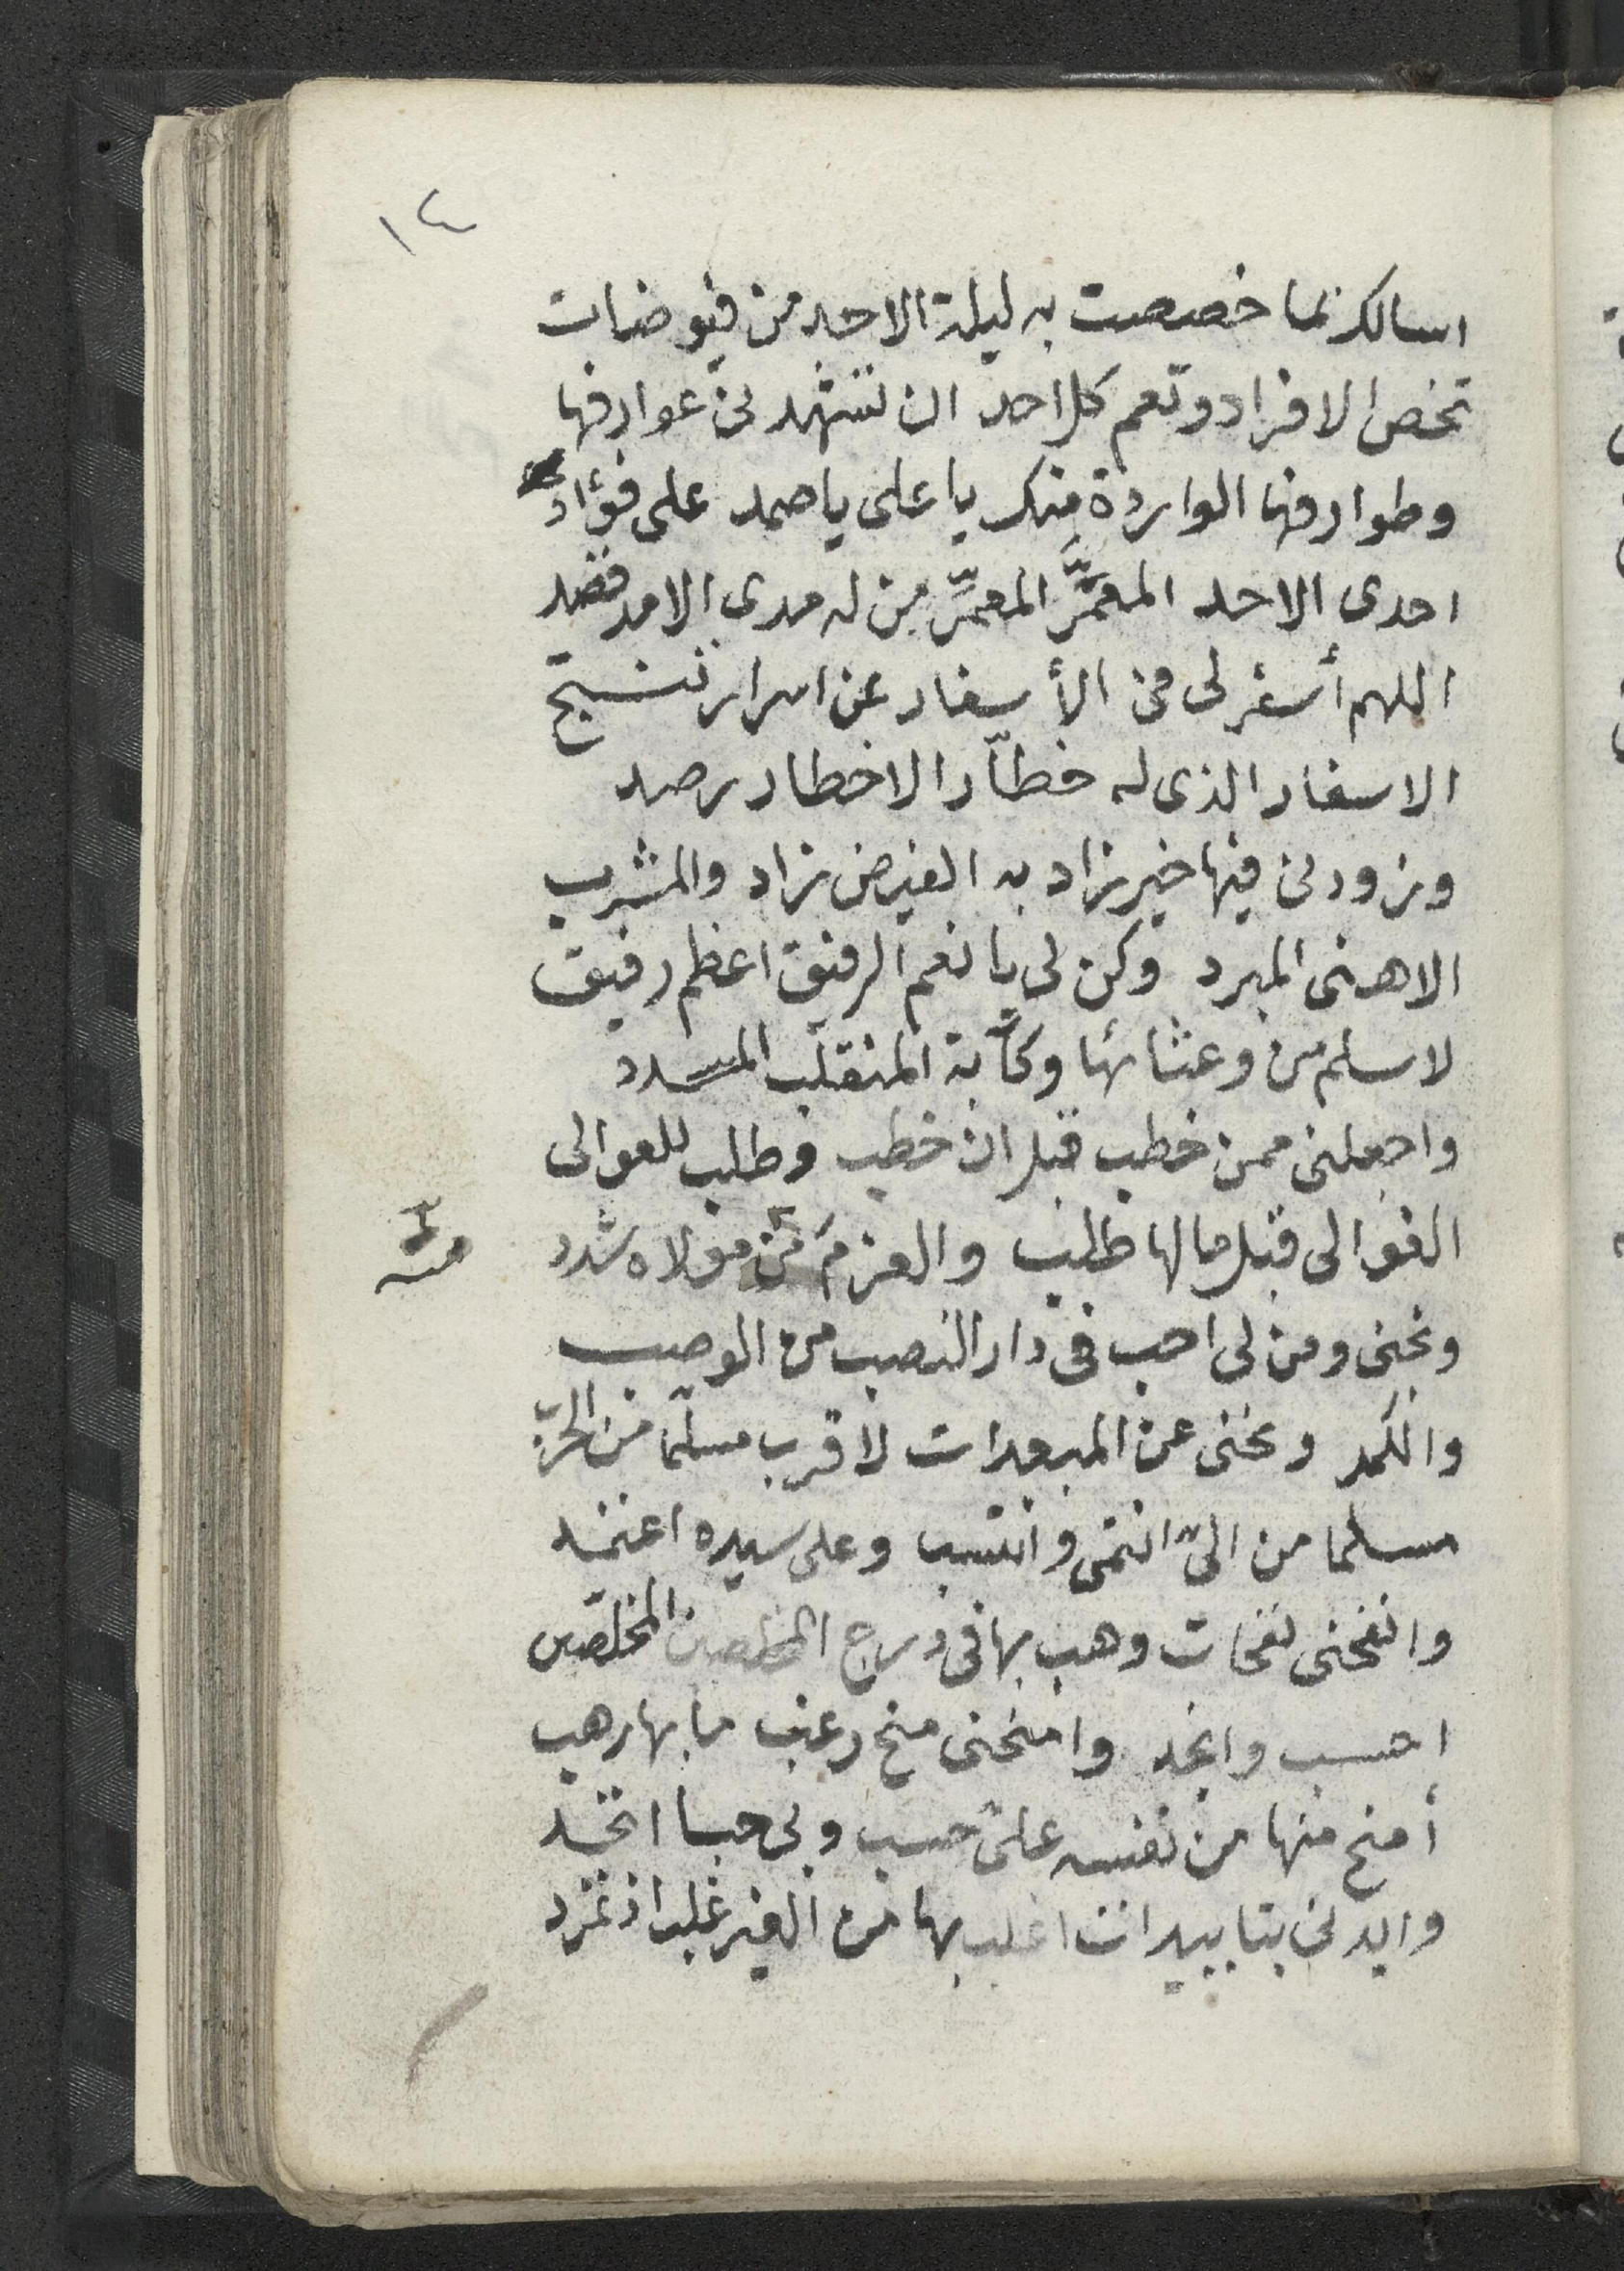 ١٤
اسالك بما خصصت به ليلة الاحد من فيوضات
تخص الافراد وتعم كل احد ان تشهدنى عوارفها
وطوارفها الواردة منك يا على يا صمد على فؤاد
احدى الاحد المعمَّر المعمِّر من له مدى الامد قصد
اللهم أسفر لى فى الأسفار عن اسرار تنتج
الاسفار الذى له خطّار الاخطار رصد
وزودنى فيها خير زاد به الفيض زاد والمشرب
الاهنى المبرد وكن لى يا نعم الرفيق اعظم رفيق
لاسلم من وعثائها وكآبة المنقلب المسدد
واجعلنى ممن خطب قبل ان خطب وطلب للعوالى
الغوالى قبل ما لها طلب والعزمَ من مولاه شدد
منه
ونجنى ومن لى احب فى دار النصب من الوصب
والكمد ونحنى عن المبعدات لاقرب مسلّما من
مسلما من الىّ انتمى وانتسب وعلى سيده اعتمد
وانفحنى نفحات وهب بها فى درج المخلصين المخلصين
احسب وانجد وامنحنى منح رغب ما بها رهب
أمنح منها من نفسه علىّ حسب وبى حبا اتحد
وايدنى بتاييدات اغلب بها من الغير غلب اذ تمرد